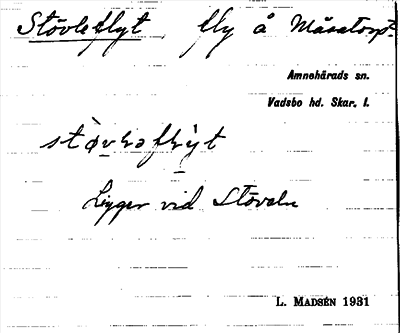 Stövleflyt, fly å Måsatorp
Amnehärads sn.
Vadsbo hd. Skar. l.
Ligger vid Stöveln
L. MADSÉN 1931